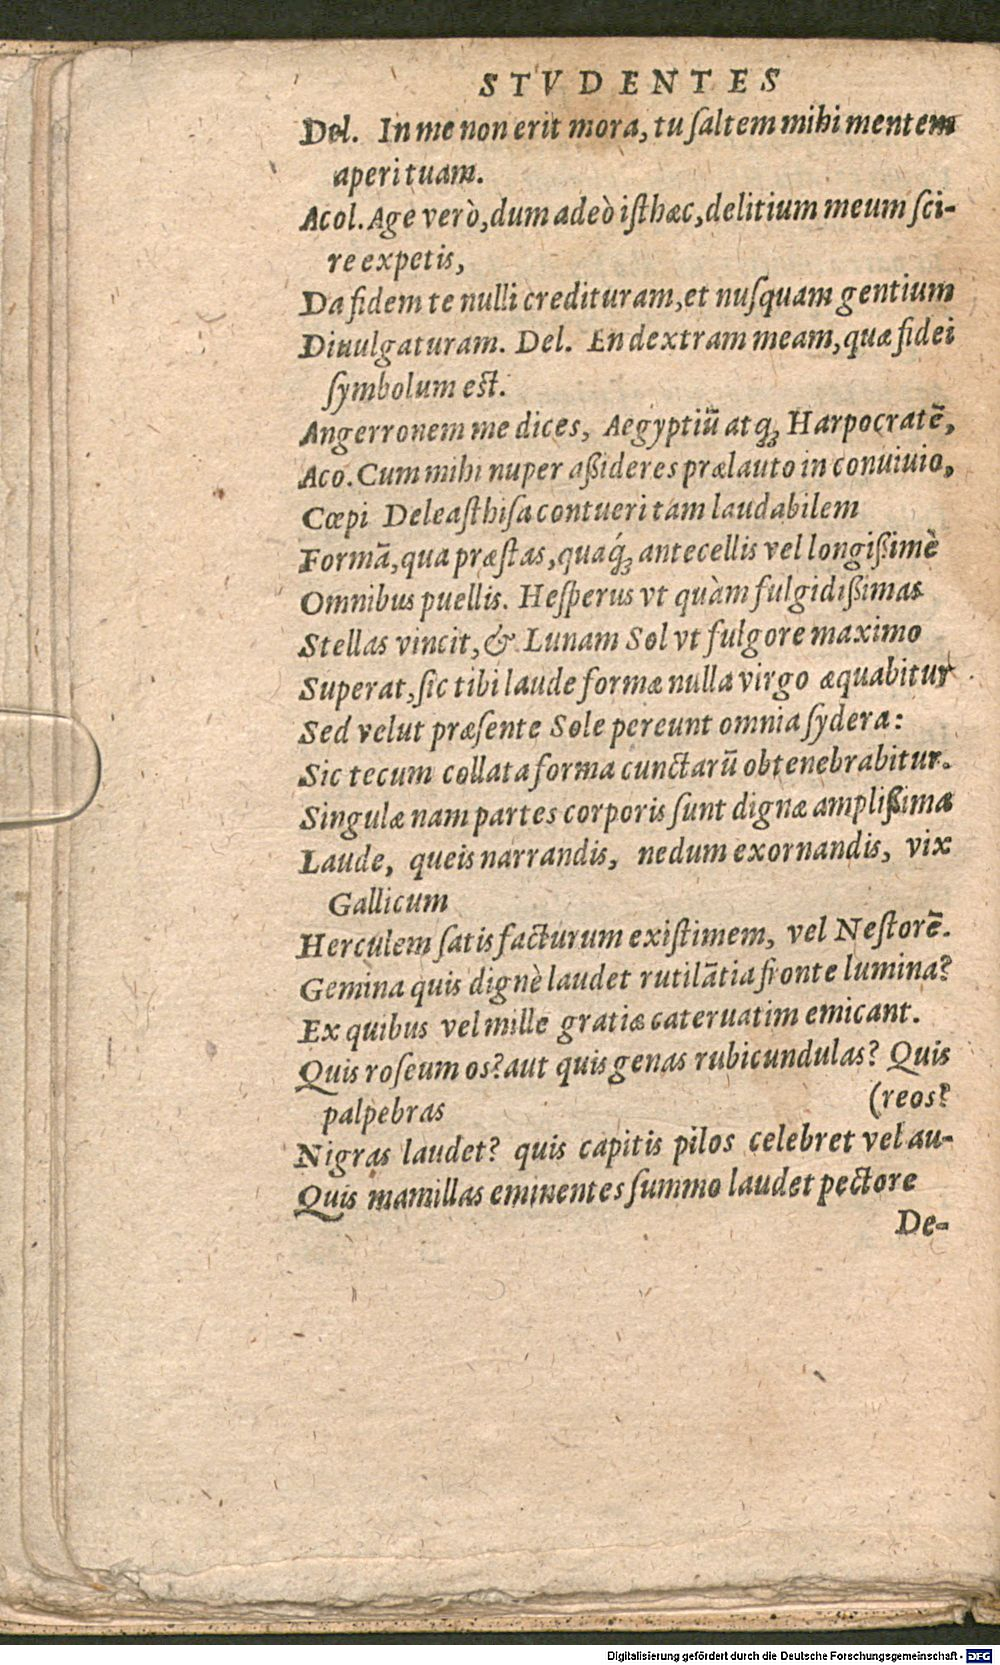 STVDENTES
Del. In me non erit mora, tu ſaltem mihi mentem
aperi tuam.
Acol. Age verò, dum adeò iſthæc, delitium meum ſci-
re expetis,
Da fidem te nulli credituram, et nuſquam gentium
Diuulgaturam. Del. En dextram meam, quæ fidei
ſymbolum eſt.
Angerronem me dices, Aegyptiū atq́; Harpocratē,
Aco. Cum mihi nuper aßideres prælauto in conuiuio,
Cœpi Deleaſthiſa contueri tam laudabilem
Formā, qua præſtas, quaq́; antecellis vel longißimè
Omnibus puellis. Heſperus vt quàm fulgidißimas
Stellas vincit, & Lunam Sol vt fulgore maximo
Superat, ſic tibi laude formæ nulla virgo æquabitur
Sed velut præſente Sole pereunt omnia ſydera:
Sic tecum collata forma cunctarū obtenebrabitur.
Singulæ nam partes corporis ſunt dignæ amplißima
Laude, queis narrandis, nedum exornandis, vix
Gallicum
Herculem ſatis facturum exiſtimem, vel Neſtorē.
Gemina quis dignè laudet rutilātia fronte lumina?
Ex quibus vel mille gratiæ cateruatim emicant.
Quis roſeum os? aut quis genas rubicundulas? Quis
palpebras (reos?
Nigras laudet? quis capitis pilos celebret vel au-
Quis mamillas eminentes ſummo laudet pectore
De-
Digitalisierung gefördert durch die Deutsche Forschungsgemeinschaft - DFG